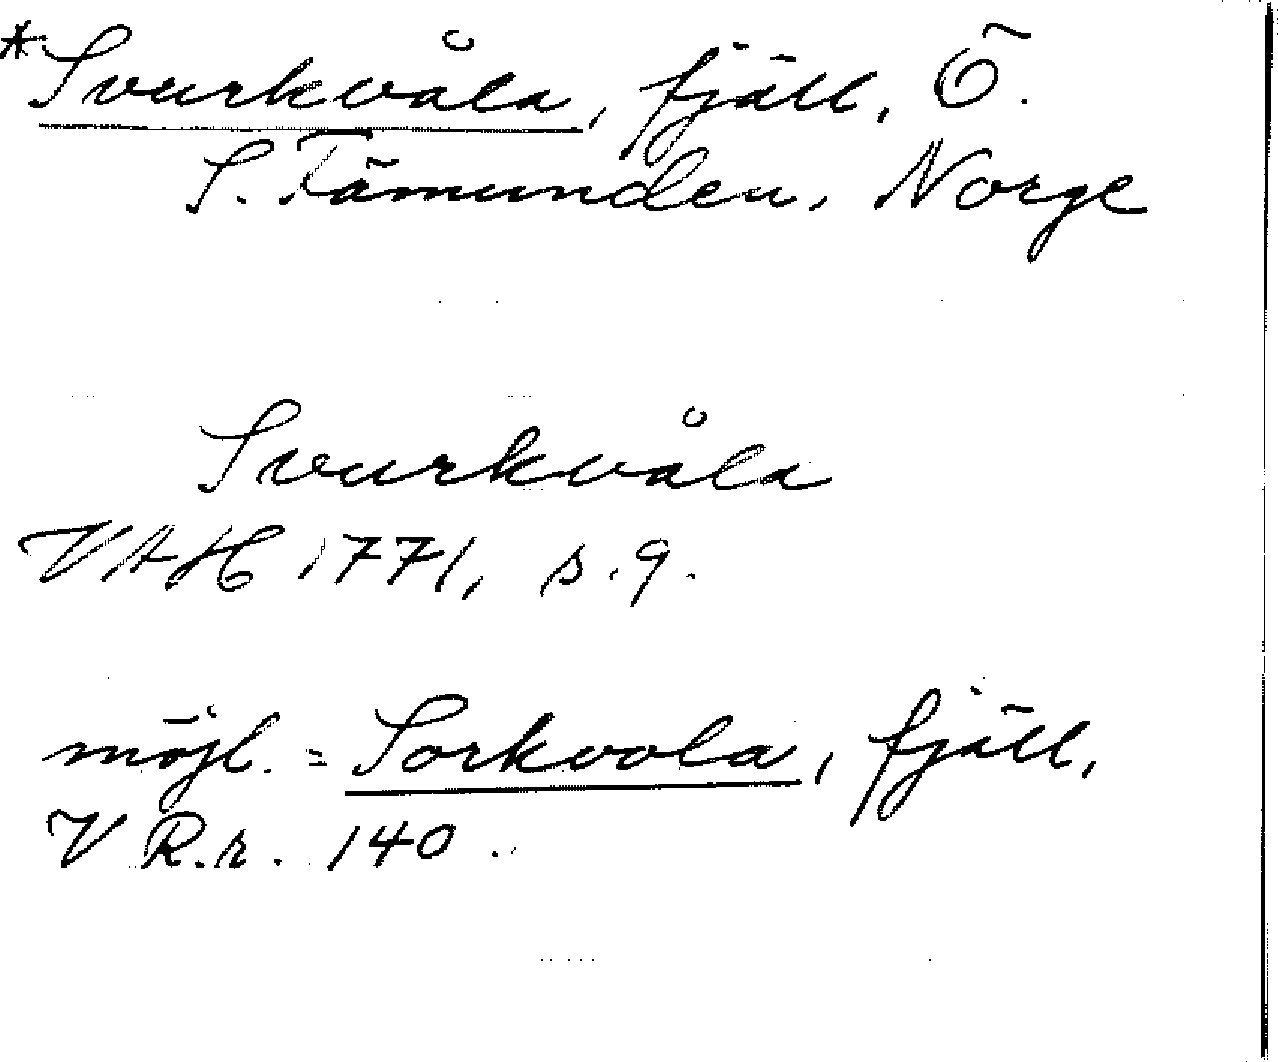 *Svurkvåla, fjäll, Ö.
S. Fämunden, Norge
Svurkvåla
VAH 1771, s. 9.
möjl. = Sorkvola, fjäll,
V R.r. 140.